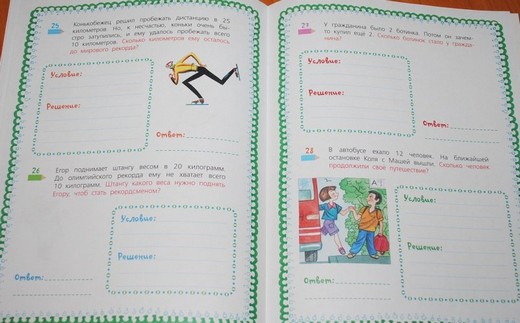 25
Конькобежец решил пробежать дистанцию в 25
километров. Но, к несчастью, коньки очень бы-
стро затупились, и ему удалось пробежать всего
10 километров. Сколько километров ему осталось
до мирового рекорда?
Условие:
Решение:
Ответ:
26
Егор поднимает штангу весом в 20 килограмм.
До олимпийского рекорда ему не хватает всего
10 килограмм. Штангу какого веса нужно поднять
Егору, чтоб стать рекордсменом?
Условие:
Решение:
Ответ:
27
У гражданина было 2 ботинка. Потом он зачем-
то купил ещё 2. Сколько ботинок стало у гражда-
нина?
Условие:
Решение:
Ответ:
28
В автобусе ехало 12 человек. На ближайшей
остановке Коля с Машей вышли. Сколько человек
продолжили свое путешествие?
А
Условие:
Решение:
Ответ: